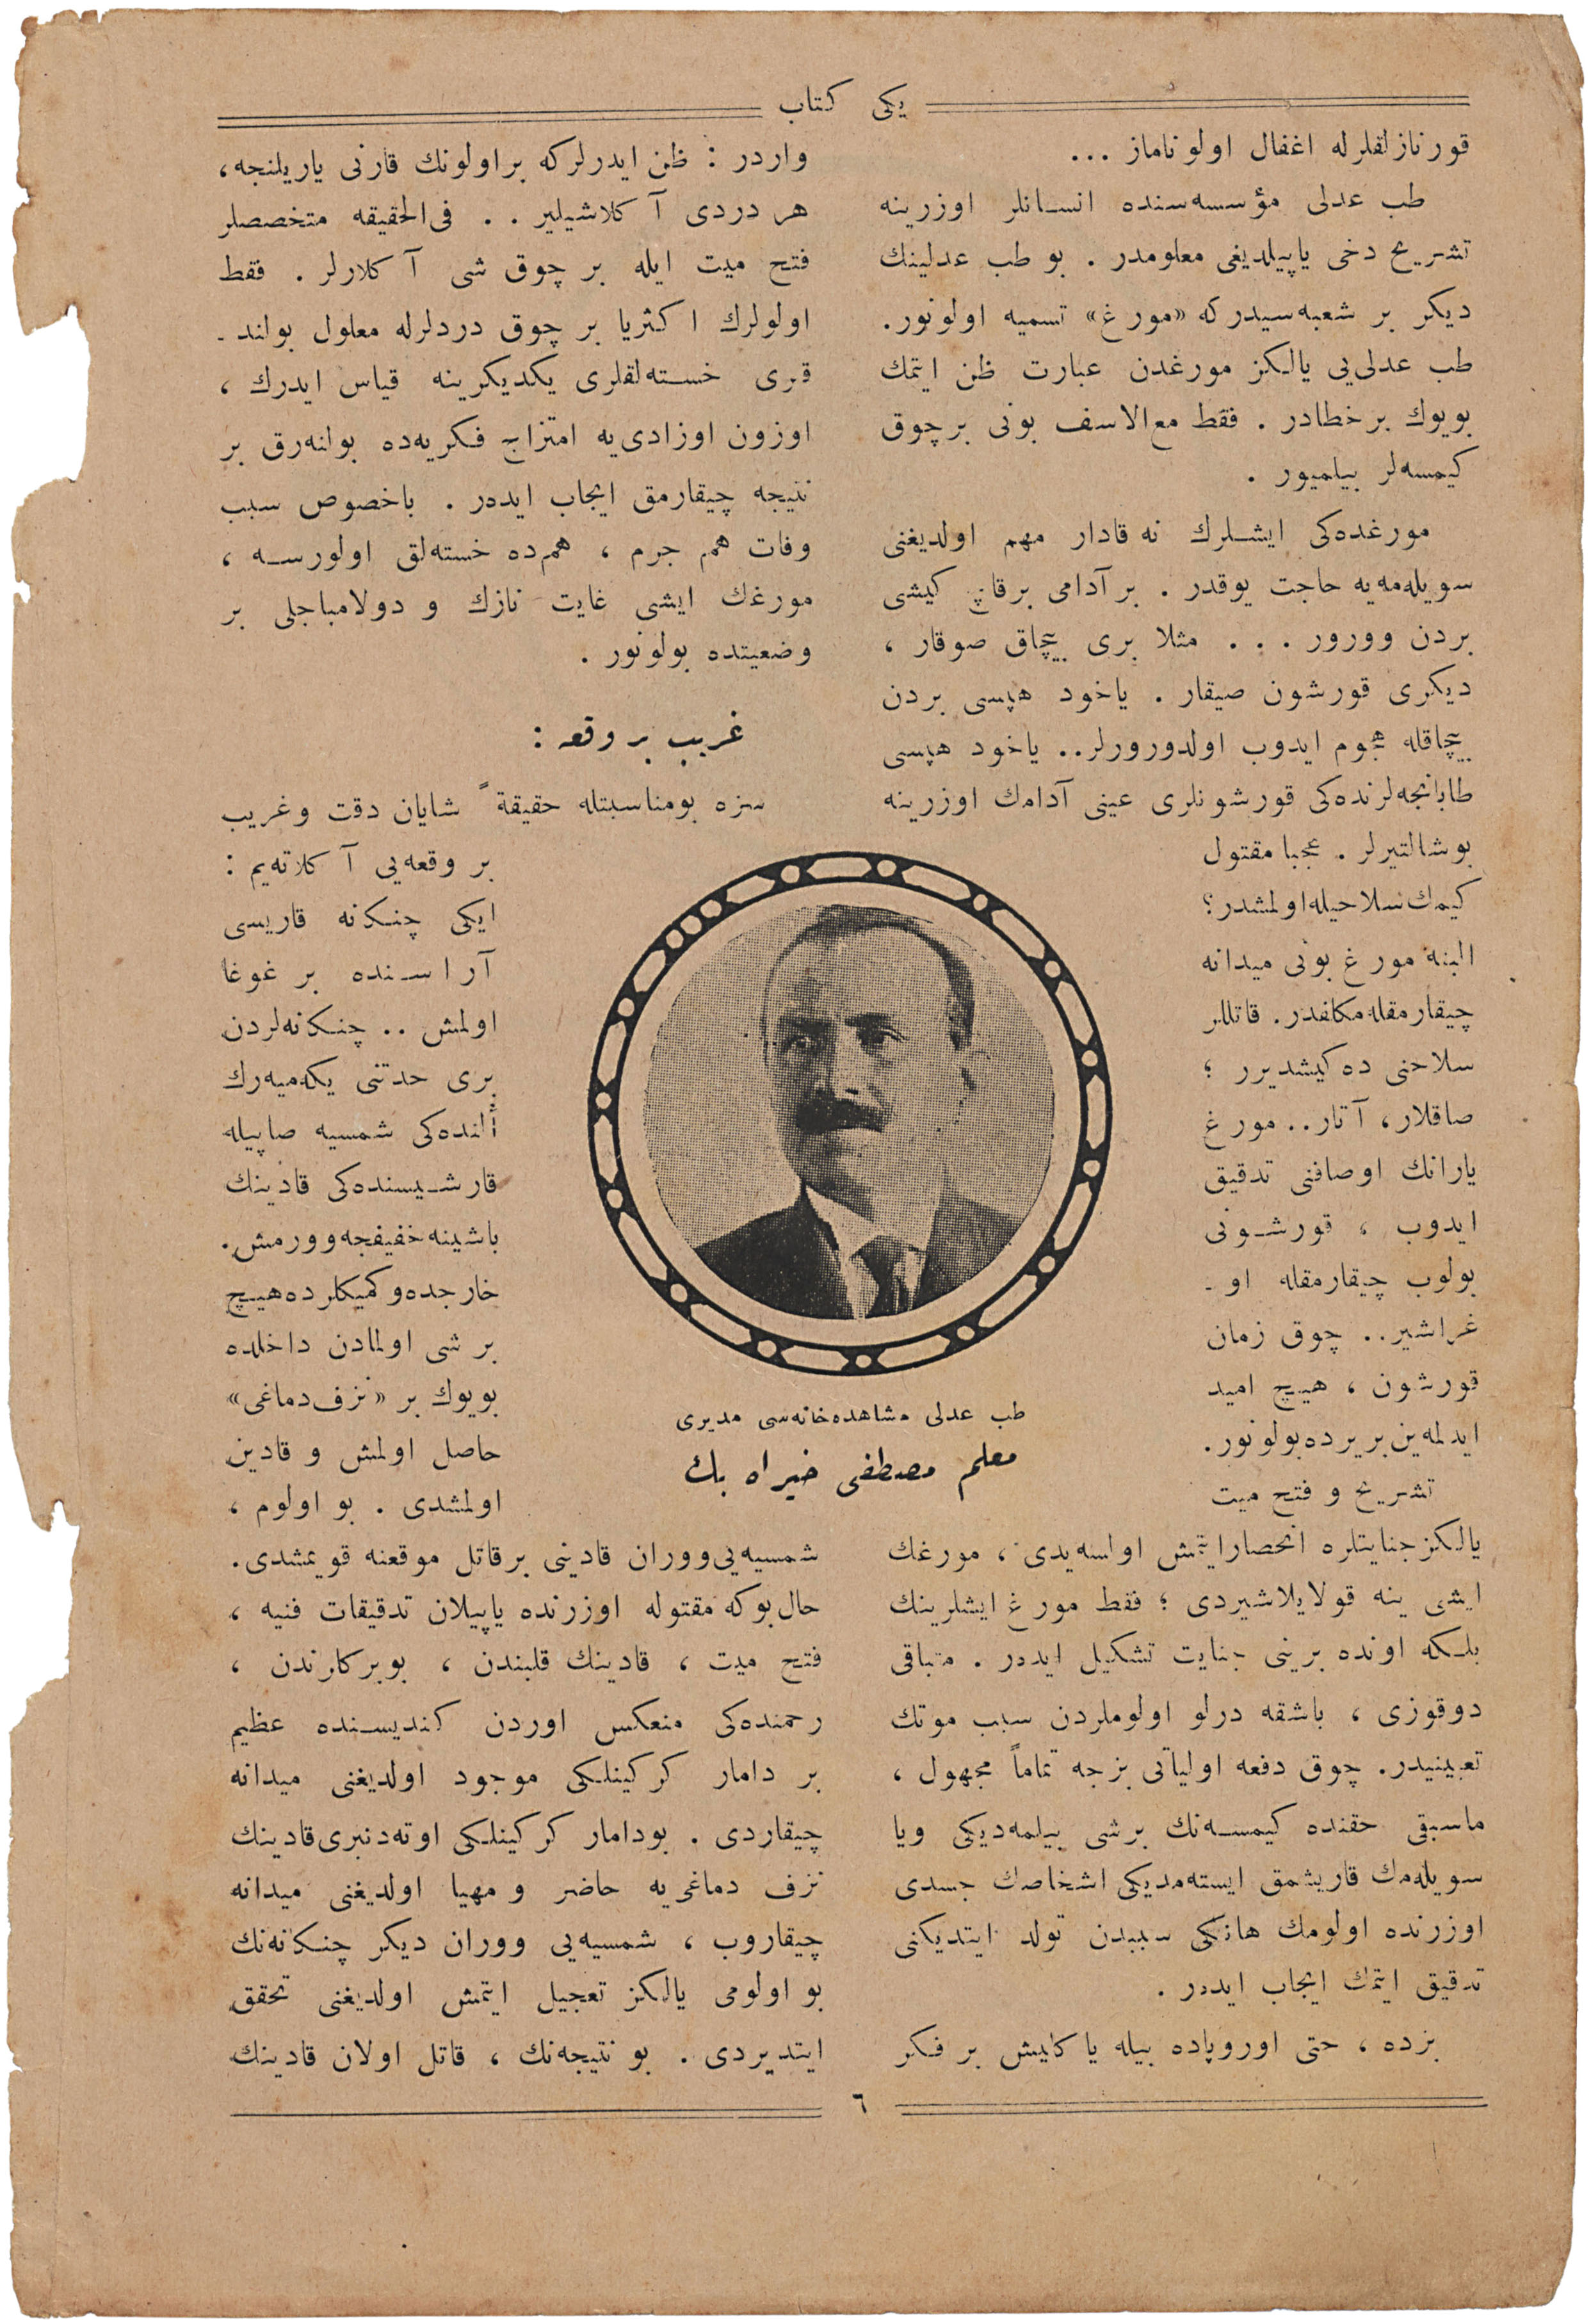 یکی کتاب
قورنازلقلرله اغفال اولوناماز ...
طب عدلی مؤسسه‌سنده انسانلر اوزرینه
تشریح دخی یاپیلدیغی معلومدر . بو طب عدلینك
دیکر بر شعبه‌سیدرکه «مورغ» تسمیه اولونور.
طب عدلی‌یی یالکز مورغدن عبارت ظن ایتمك
بویوك برخطادر . فقط مع‌الاسف بونی برچوق
کیمسه‌لر بیلمیور .
مورغده‌کی ایشلرك نه قادار مهم اولدیغنی
سویله‌مه‌یه حاجت یوقدر . بر آدامی برقاچ کیشی
بردن وورور . . . مثلا بری بیچاق صوقار ،
دیکری قورشون صیقار . یاخود هپسی بردن
بیچاقله هجوم ایدوب اولدورورلر.. یاخود هپسی
طابانجه‌لرنده‌کی قورشونلری عینی آدامك اوزرینه
بوشالتیرلر . عجبا مقتول
کیمك سلاحیله اولمشدر؟
البته مورغ بونی میدانه
چیقارمقله مکلفدر. قاتللر
سلاحنی ده‌کیشدیرر ؛
صاقلار، آتار.. مورغ
یارانك اوصافنی تدقیق
ایدوب ، قورشونی
بولوب چیقارمقله او ـ
غراشیر.. چوق زمان
قورشون ، هیچ امید
ایدلمه‌ین بریرده بولونور.
تشریح و فتح میت
یالکز جنایتلره انحصار ایتمش اولسه‌یدی ، مورغك
ایشی ینه قولایلاشیردی ؛ فقط مورغ ایشلرینك
بلکه اونده برینی جنایت تشکیل ایدر . متباقی
دوقوزی ، باشقه درلو اولوملردن سبب موتك
تعیینیدر. چوق دفعه اولیاتی بزجه تماماً مجهول ،
ماسبقی حقنده کیمسه‌نك برشی بیلمه‌دیکی ویا
سویله‌مك قاریشمق ایسته‌مدیکی اشخاصك جسدی
اوزرنده اولومك هانکی سببدن تولد ایتدیکنی
تدقیق ایتمك ایجاب ایدر .
بزده ، حتی اوروپاده بیله یاکلیش بر فکر
واردر : ظن ایدرلرکه بر اولونك قارنی یاریلنجه،
هر دردی آکلاشیلیر . . فی‌الحقیقه متخصصلر
فتح میت ایله بر چوق شی آکلارلر . فقط
اولولرك اکثریا بر چوق دردلرله معلول بولند ـ
قری خسته‌لقلری یکدیکرینه قیاس ایدرك ،
اوزون اوزادی‌یه امتزاج فکریه‌ده بولنه‌رق بر
نتیجه چیقارمق ایجاب ایدر . باخصوص سبب
وفات هم جرم ، هم‌ده خسته‌لق اولورسه ،
مورغك ایشی غایت نازك و دولامباجلی بر
وضعیتده بولونور .
غریب بر وقعه :
سزه بومناسبتله حقیقةً شایان دقت وغریب
بر وقعه‌یی آکلاته‌یم :
ایکی چنکانه قاریسی
آراسنده بر غوغا
اولمش .. چنکانه‌لردن
بری حدتنی یکه‌میه‌رك
ألنده‌کی شمسیه صاپیله
قارشیسنده‌کی قادینك
باشینه خفیفجه وورمش.
خارجده و کمیکلرده هیچ
بر شی اولمادن داخلده
بویوك بر «نزف دماغی»
حاصل اولمش و قادین
اولمشدی . بو اولوم ،
شمسیه‌یی ووران قادینی بر قاتل موقعنه قویمشدی.
حال بوکه مقتوله اوزرنده یاپیلان تدقیقات فنیه ،
فتح میت ، قادینك قلبندن ، بوبرکلرندن ،
رحمنده‌کی منعکس اوردن کندیسنده عظیم
بر دامار کرکینلکی موجود اولدیغنی میدانه
چیقاردی . بودامار کرکینلکی اوته‌دنبری قادینك
نزف دماغی‌یه حاضر و مهیا اولدیغنی میدانه
چیقاروب ، شمسیه‌یی ووران دیکر چنکانه‌نك
بو اولومی یالکز تعجیل ایتمش اولدیغنی تحقق
ایتدیردی . بو نتیجه‌نك ، قاتل اولان قادینك
طب عدلی مشاهده‌خانه‌سی مدیری
معلم مصطفی خیراه بك
٦